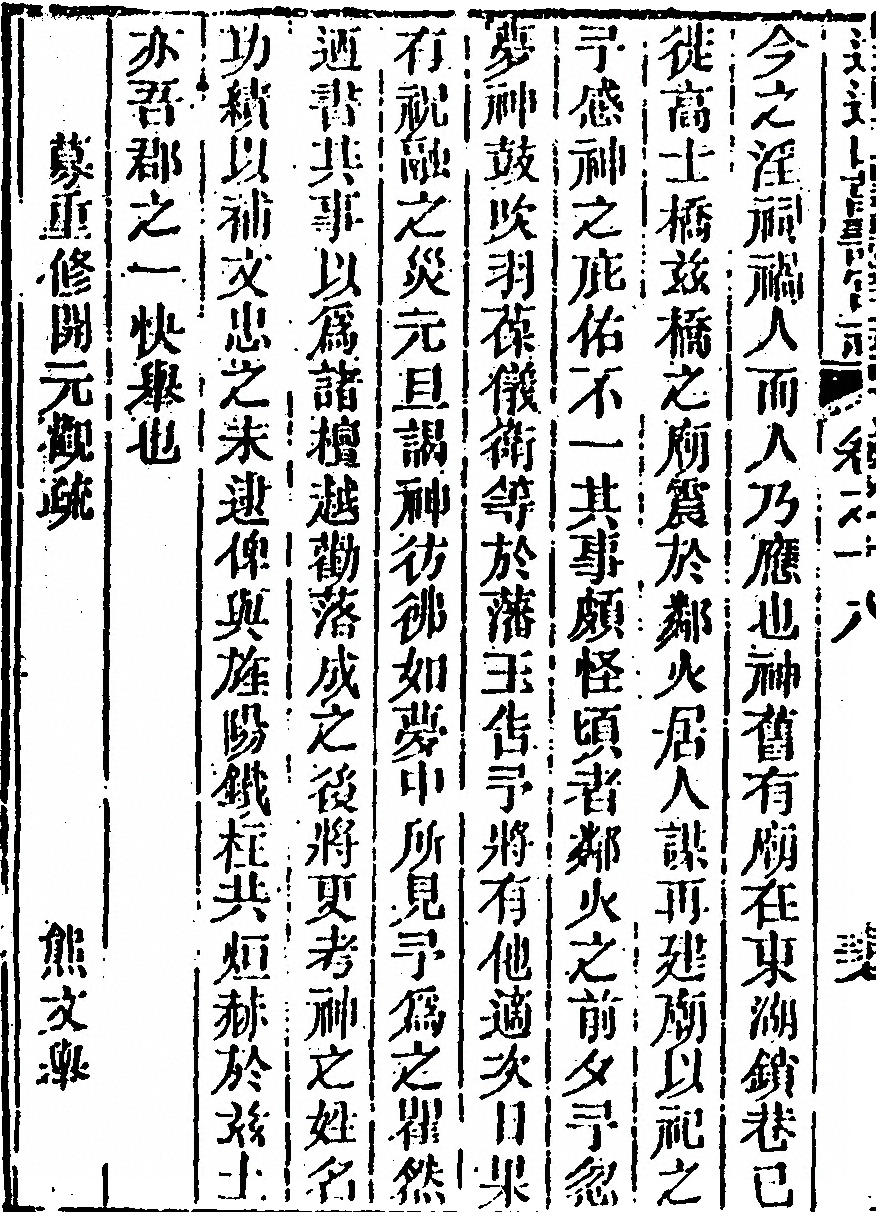 今之淫祠禍人而人乃應也神舊有廟在東湖鎖巷已
徙高士橋兹橋之廟震於鄰火居人謀再建廟以祀之
予感神之庇佑不一其事頗怪頃者鄰火之前夕予忽
夢神鼓吹羽葆儀衛等於藩王告予將有他適次日果
有祝融之災元旦謁神彷彿如夢中所見予爲之瞿然
迺書其事以爲諸檀越勸落成之後將更考神之姓名
功績以補文忠之未逮俾與旌陽鐵柱共烜赫於兹土
亦吾郡之一快舉也
募重修開元觀疏 熊文舉